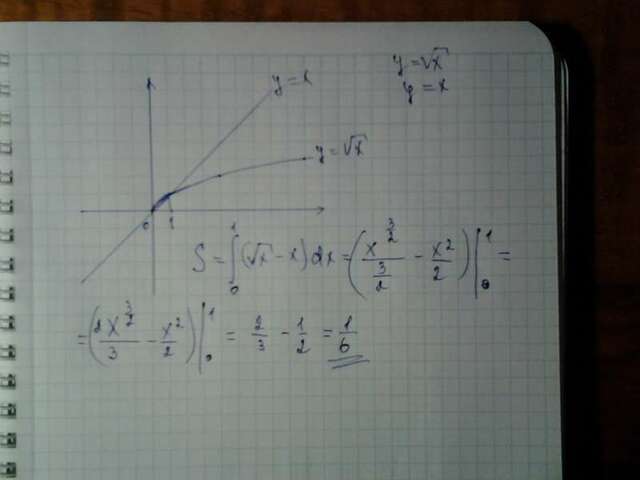 y = √x
y = x
y = x
y = √x
0 1
S = ∫₀¹ (√x - x) dx = (x^(3/2) / (3/2) - x²/2) |₀¹ =
= (2x^(3/2)/3 - x²/2) |₀¹ = 2/3 - 1/2 = 1/6